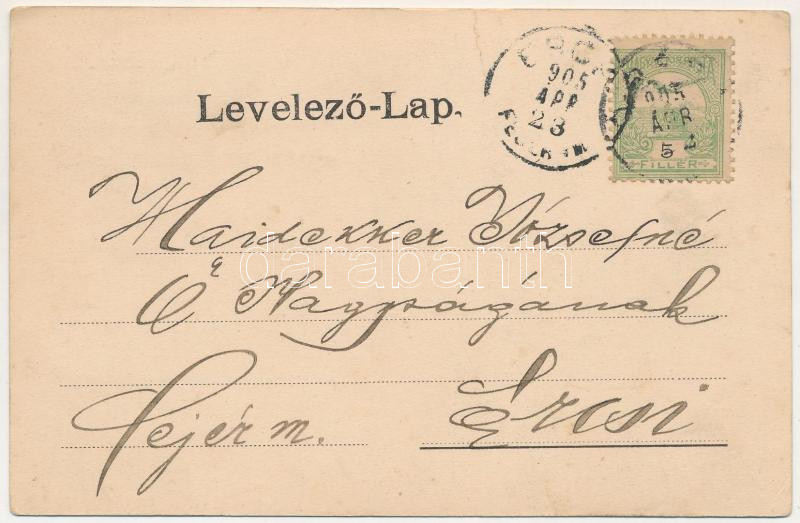 Levelező-Lap.
ERCSI
905
APR
23
FEJÉR VM
905
APR
5
FILLÉR
Haidekker Józsefné
Ő Nagyságának
Fejér m. Ercsi
darabanth